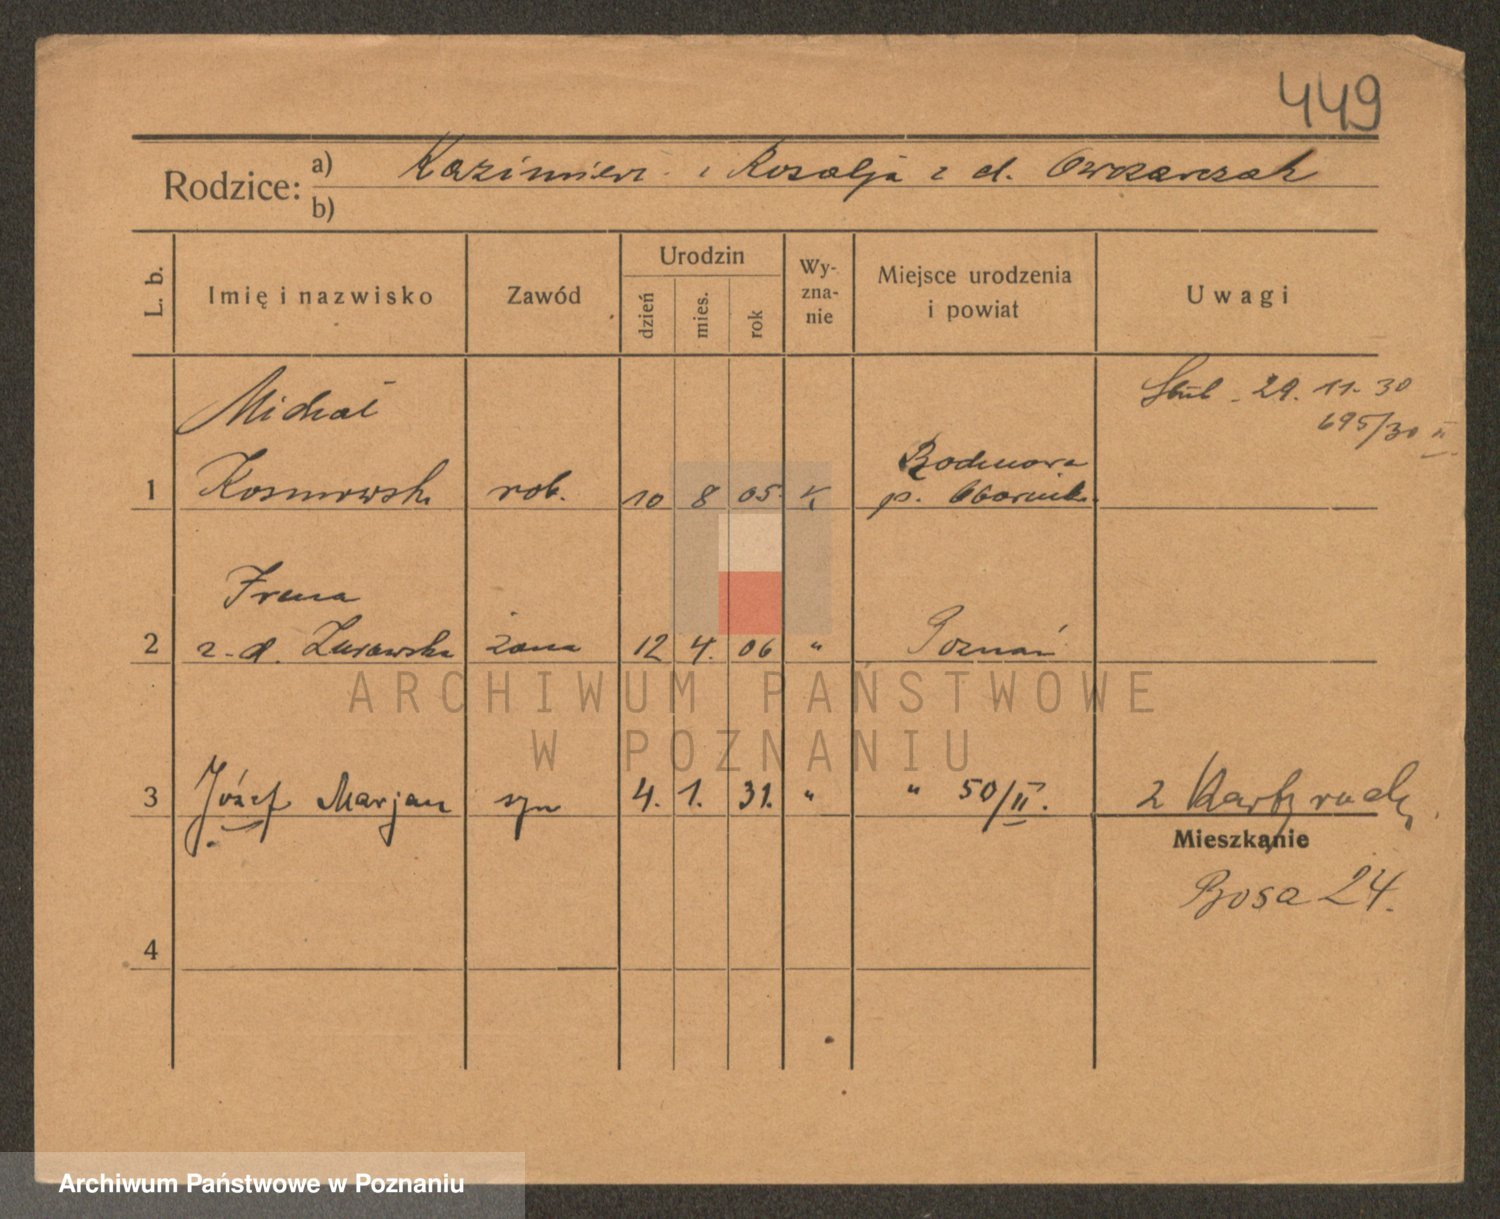 449
Rodzice: a) Kazimierz i Rozalja z d. Owczarczak
b)
L. b. Imię i nazwisko Zawód Urodzin dzień mies. rok Wy-zna-nie Miejsce urodzenia i powiat Uwagi
Michał Ślub 29. 11. 30
695/30 II
1 rob. 10 8 05 K p. Oborniki
Irena
2 z d. Żurawska żona 12 4. 06 " Poznań
3 Józef Marjan syn 4. 1. 31. " " 50/II. 2
Mieszkanie
Bosa 24.
4
ARCHIWUM PAŃSTWOWE
W POZNANIU
Archiwum Państwowe w Poznaniu